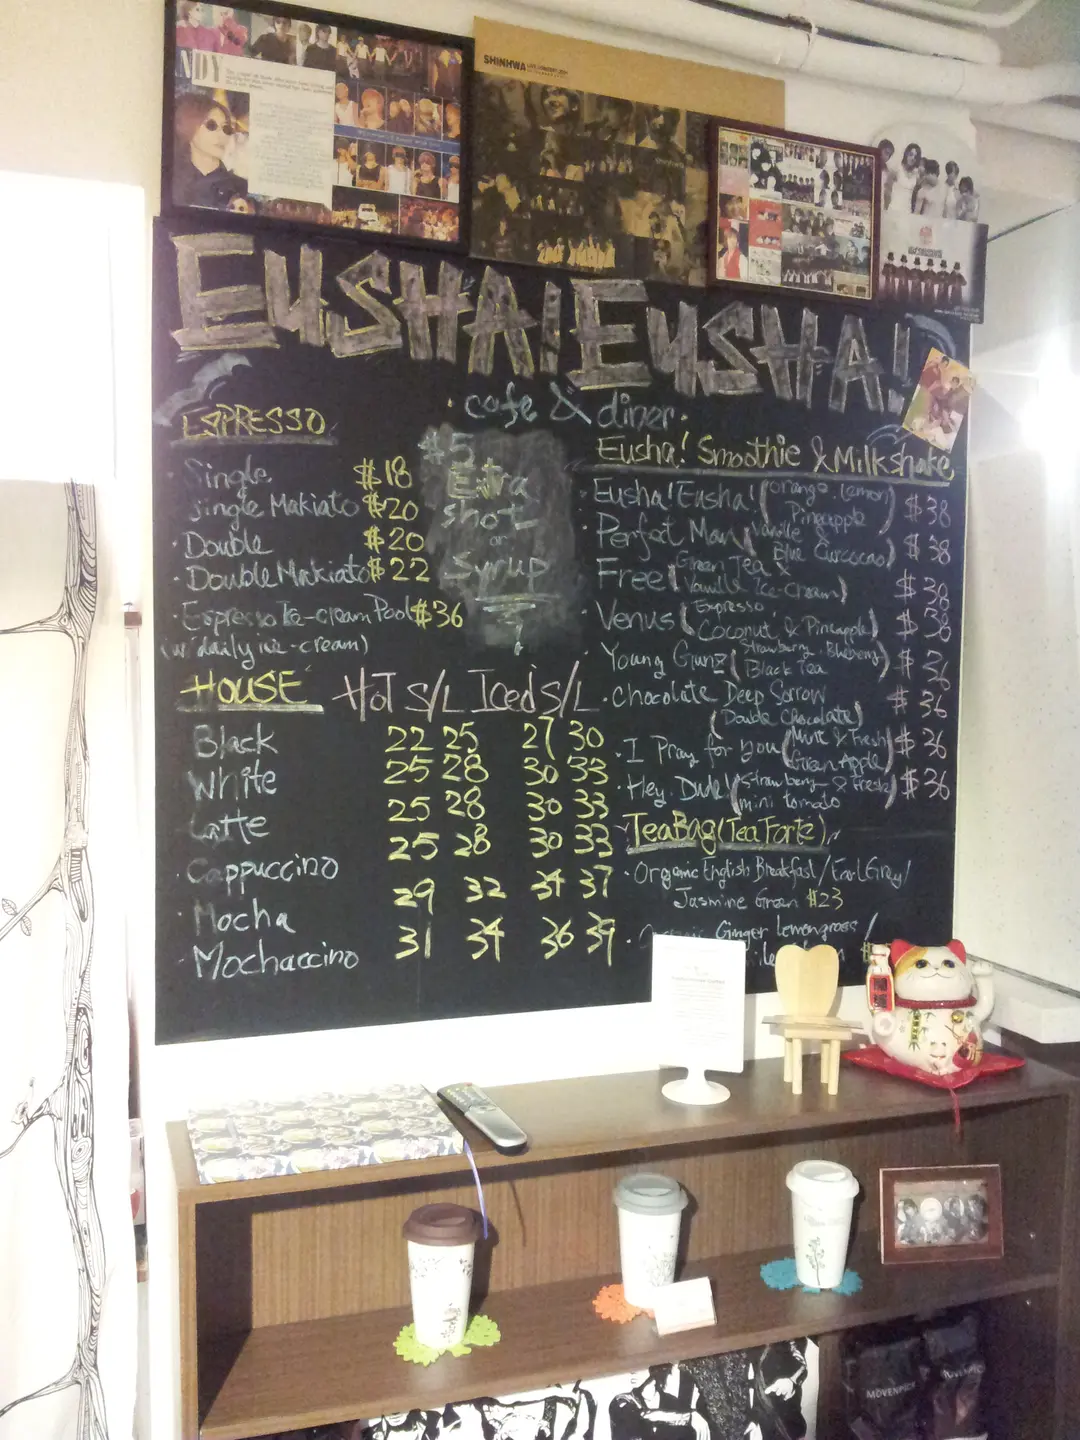 NDY
SHINHWA
EUSHA! EUSHA!
cafe & diner
ESPRESSO
Single $18
Single Makiato $20
Double $20
Double Makiato $22
Espresso Ice-cream Pool $36
(w/ daily ice-cream)
$5
Extra
shot
or
Syrup
HOUSE Hot S/L Iced S/L
Black 22 25 27 30
White 25 28 30 33
Latte 25 28 30 33
Cappuccino 25 28 30 33
Mocha 29 32 34 37
Mochaccino 31 34 36 39
Eusha! Smoothie & Milkshake
Eusha! Eusha! (Orange, Lemon $38
Pineapple)
Perfect Man (Vanilla & $38
Blue Curcacao)
Free (Green Tea & $38
Vanilla Ice-Cream)
Venus (Espresso $38
Coconut & Pineapple)
Young Gunz (Strawberry, Blueberry $36
Black Tea)
Chocolate Deep Sorrow $36
(Double Chocolate)
I Pray for you (Mint & Fresh $36
Green Apple)
Hey, Dude! (Strawberry & Fresh $36
mini tomato)
TeaBag (Tea Forte)
Organic English Breakfast / Earl Grey /
Jasmine Green $23
Ginger Lemongrass /
MOVENPICK